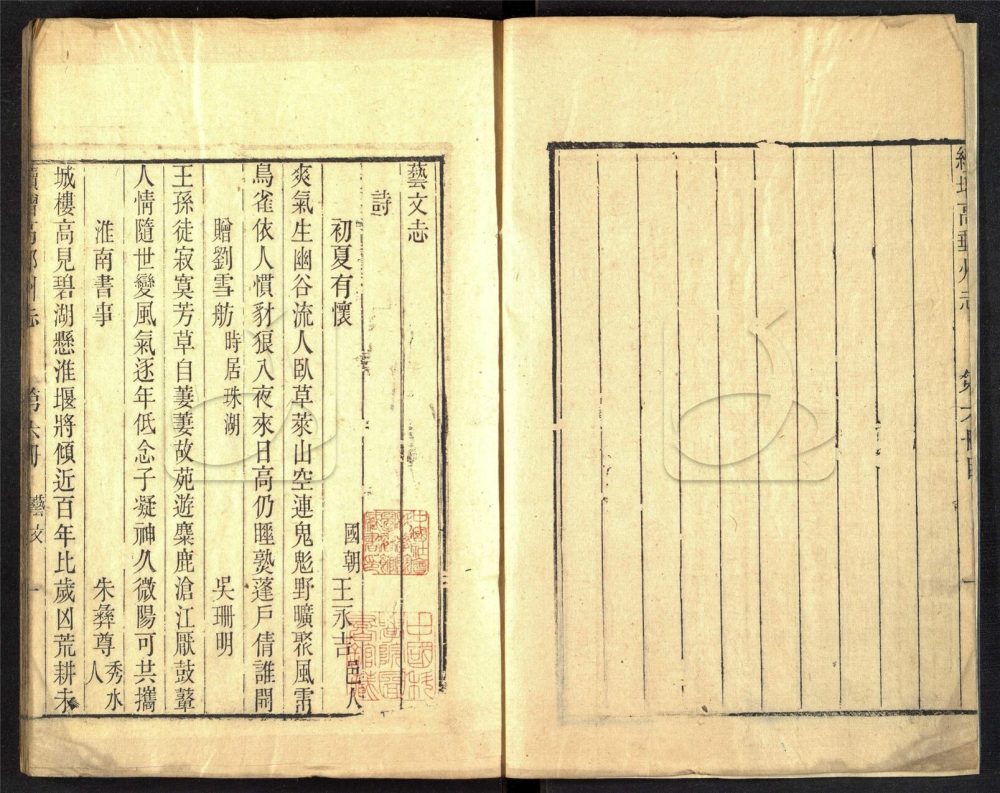 續增高郵州志 第六冊目 一
藝文志
詩
初夏有懷 國朝 王永吉 邑人
爽氣生幽谷流人臥草萊山空連鬼魅野曠聚風雷
鳥雀依人慣豺狼入夜來日高仍睡熟蓬戶倩誰開
贈劉雪舫 時居珠湖 吳珊明
王孫徒寂寞芳草自萋萋故苑遊麋鹿滄江厭鼓鼙
人情隨世變風氣逐年低念子凝神久微陽可共攜
淮南書事 朱彝尊 秀水人
城樓高見碧湖懸淮堰將傾近百年比歲凶荒耕未
續增高郵州志 第六冊 藝文 一